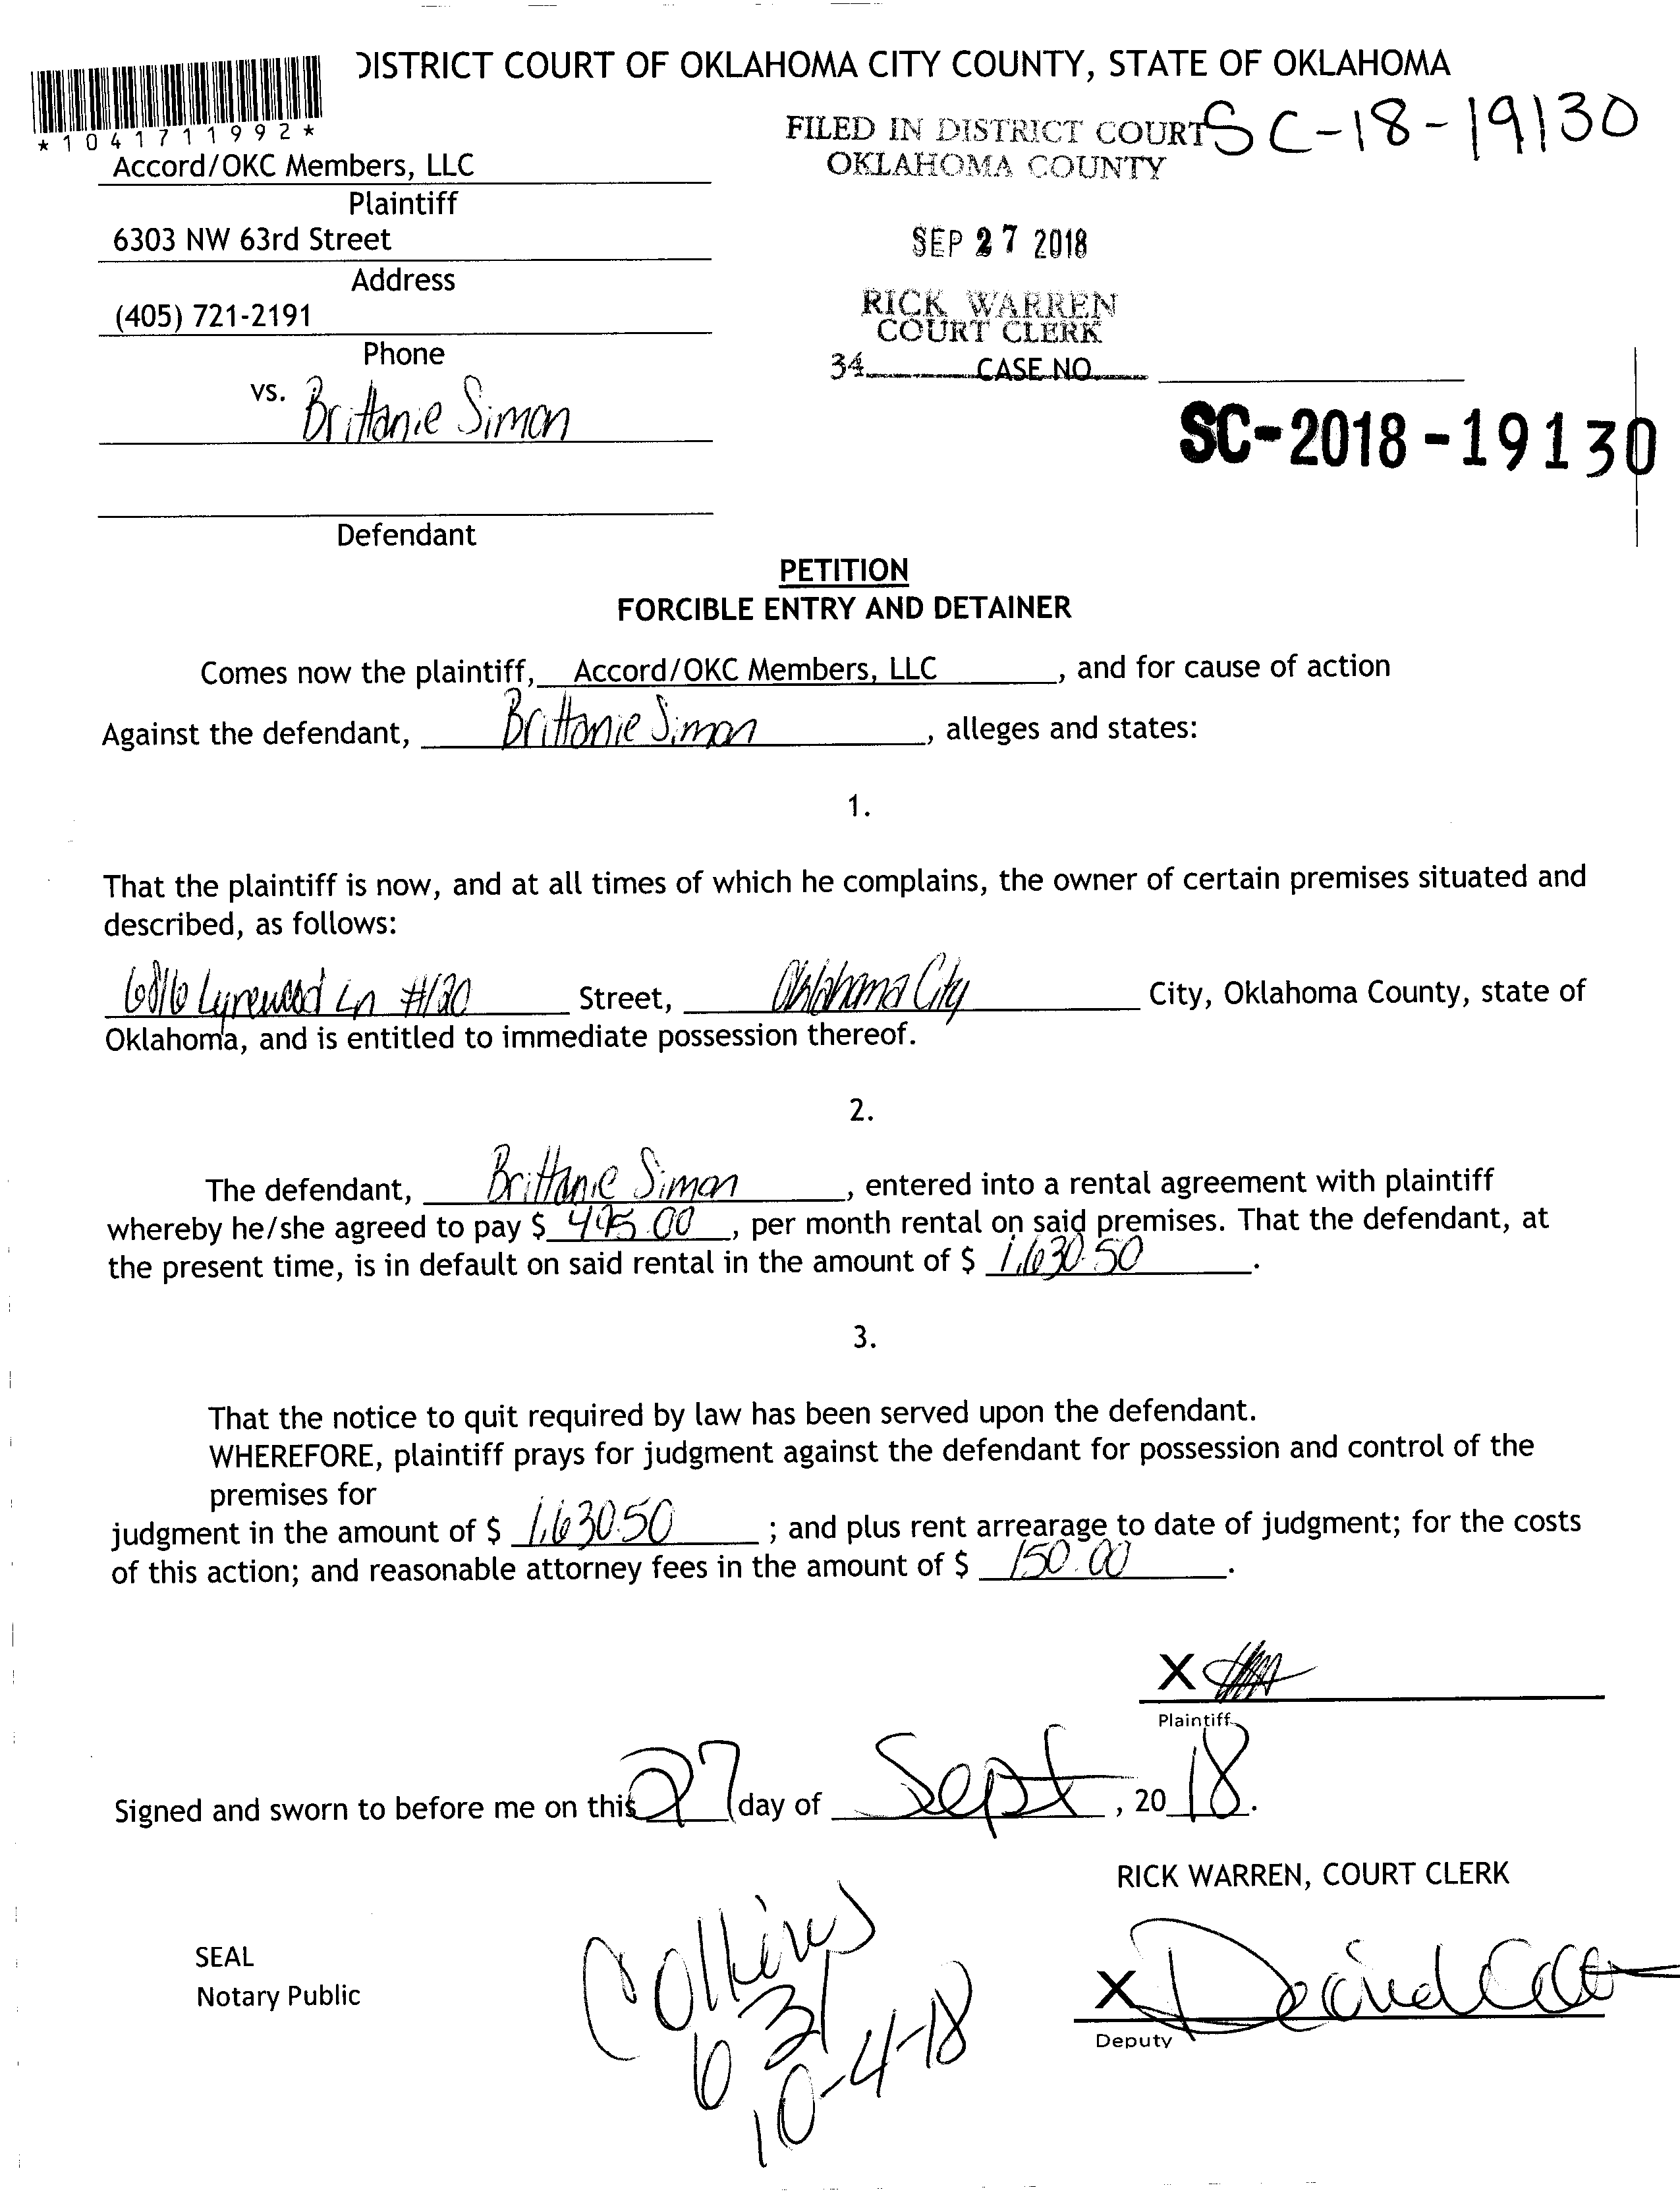 DISTRICT COURT OF OKLAHOMA CITY COUNTY, STATE OF OKLAHOMA
*1041711992*
FILED IN DISTRICT COURT
OKLAHOMA COUNTY
SC-18-19130
Accord/OKC Members, LLC
Plaintiff
6303 NW 63rd Street
Address
(405) 721-2191
Phone
SEP 27 2018
RICK WARREN
COURT CLERK
34 CASE NO.
SC-2018-19130
vs. Brittanie Simon
Defendant
PETITION
FORCIBLE ENTRY AND DETAINER
Comes now the plaintiff, Accord/OKC Members, LLC, and for cause of action
Against the defendant, Brittanie Simon, alleges and states:
1.
That the plaintiff is now, and at all times of which he complains, the owner of certain premises situated and
described, as follows:
6816 Lyrewood Ln #120 Street, Oklahoma City City, Oklahoma County, state of
Oklahoma, and is entitled to immediate possession thereof.
2.
The defendant, Brittanie Simon, entered into a rental agreement with plaintiff
whereby he/she agreed to pay $ 495.00, per month rental on said premises. That the defendant, at
the present time, is in default on said rental in the amount of $ 1,630.50.
3.
That the notice to quit required by law has been served upon the defendant.
WHEREFORE, plaintiff prays for judgment against the defendant for possession and control of the
premises for
judgment in the amount of $ 1,630.50; and plus rent arrearage to date of judgment; for the costs
of this action; and reasonable attorney fees in the amount of $ 150.00.
X
Plaintiff
Signed and sworn to before me on this 27 day of Sept, 20 18.
RICK WARREN, COURT CLERK
SEAL
Notary Public
Collins
631
10-4-18
X
Deputy